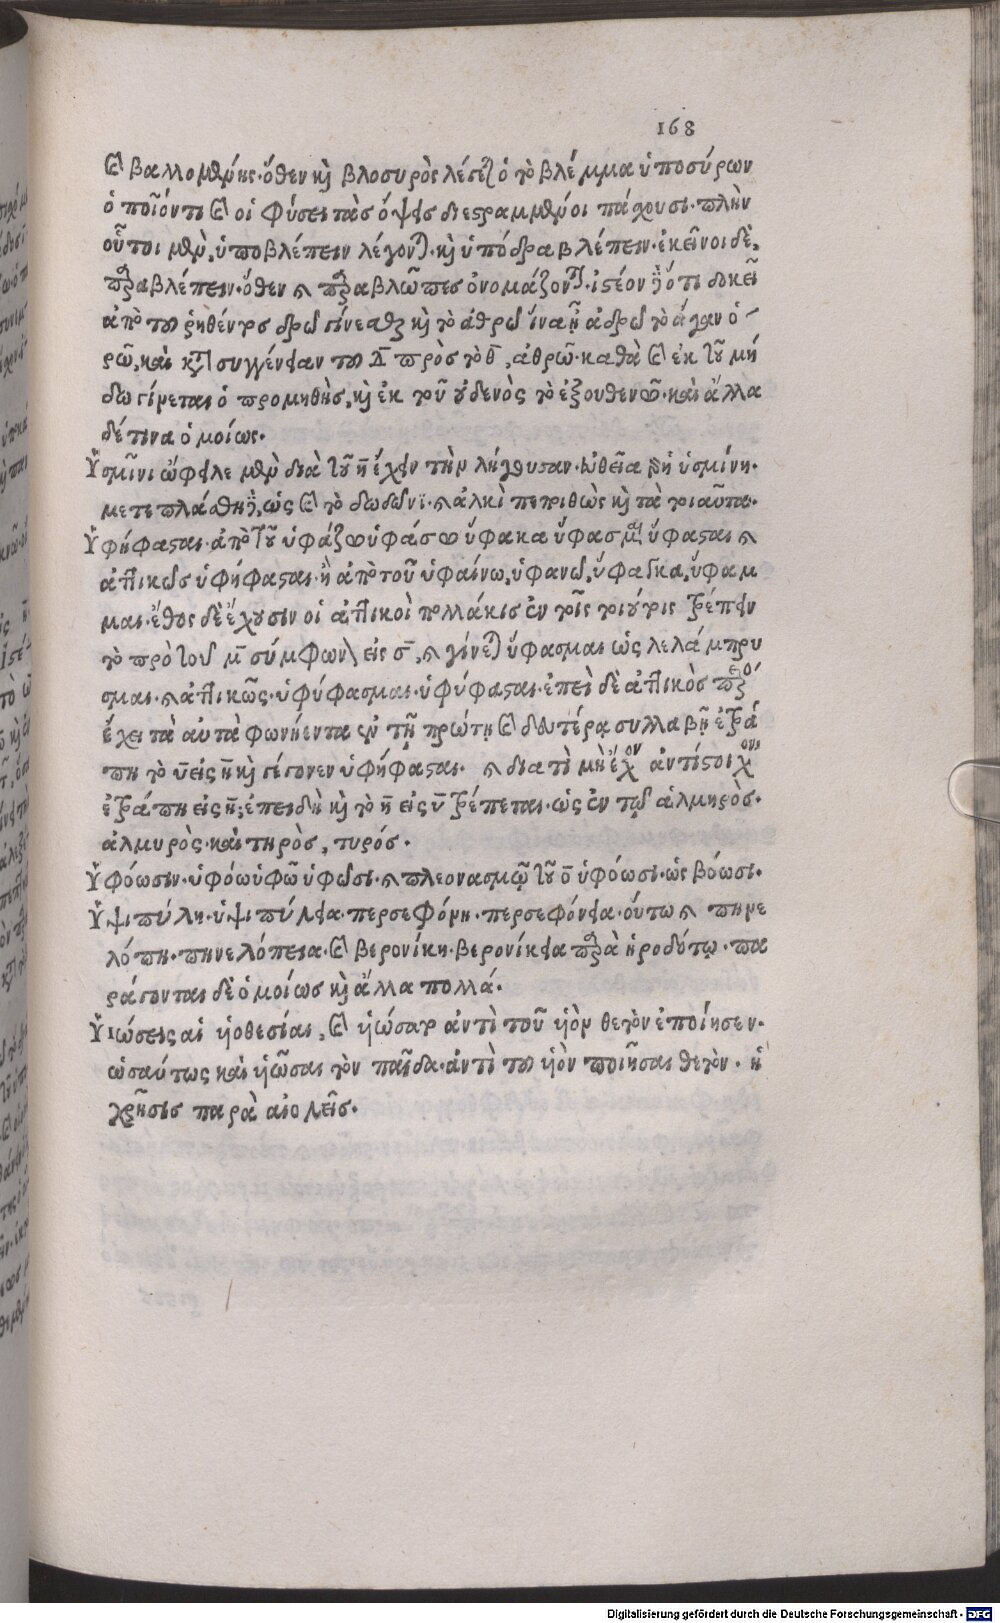 168
καὶ βαλλομένης· ὅθεν καὶ βλοσυρὸς λέγεται ὁ τὸ βλέμμα ὑποσύρων
ὁποῖόν τι καὶ οἱ φύσει τὰς ὄψεις διεστραμμένοι πάσχουσι· πλὴν
οὗτοι μὲν, ὑποβλέπειν λέγονται· καὶ ὑπόδρα βλέπειν· ἐκεῖνοι δὲ,
παραβλέπειν· ὅθεν καὶ παραβλῶπες ὀνομάζονται· ἰστέον δὲ ὅτι δοκεῖ
ἀπὸ τοῦ ῥηθέντος δρῶ γίνεσθαι καὶ τὸ ἀθρῶ ἵνα ᾖ ἀδρῶ τὸ ἄγαν ὁ
ρῶ, καὶ κατὰ συγγένειαν τοῦ δ̄ πρὸς τὸ θ̄, ἀθρῶ· καθὰ καὶ ἐκ τοῦ μή
δω γίνεται ὁ προμηθὴς, καὶ ἐκ τοῦ οὐδενὸς τὸ ἐξουθενῶ· καὶ ἄλλα
δέ τινα ὁμοίως.
Ὑσμῖνι ὤφειλε μὲν διὰ τοῦ η̄ ἔχειν τὴν λήγουσαν· εὐθεῖα γὰρ ἡ ὑσμίνη·
μετεπλάσθη δὲ, ὡς καὶ τὸ δωδῶνι· καὶ ἀλκὶ πεποιθὼς καὶ τὰ τοιαῦτα·
Ὑφήφασται· ἀπὸ τοῦ ὑφάζω ὑφάσω ὕφακα ὕφασμαι ὕφασται καὶ
ἀττικῶς ὑφήφασται· ἢ ἀπὸ τοῦ ὑφαίνω, ὑφανῶ, ὕφαγκα, ὕφαμ
μαι· ἔθος δὲ ἔχουσιν οἱ ἀττικοὶ πολλάκις ἐν τοῖς τοιούτοις τρέπειν
τὸ πρὸ τοῦ μ̄ σύμφωνον εἰς σ̄, καὶ γίνεται ὕφασμαι ὡς λελάμπρυ
σμαι· καὶ ἀττικῶς· ὑφύφασμαι· ὑφύφασται· ἐπεὶ δὲ ἀττικὸς
ἔχει τὰ αὐτὰ φωνήεντα ἐν τῇ πρώτῃ καὶ δευτέρᾳ συλλαβῇ ἐτρά
πη τὸ ῡ εἰς η̄ καὶ γέγονεν ὑφήφασται· καὶ διατὶ μὴ ἔχον ἀντίστοιχον
ἐτράπη εἰς η̄; ἐπειδὴ καὶ τὸ η̄ εἰς ῡ τρέπεται· ὡς ἐν τῷ ἁλμηρὸς·
ἁλμυρὸς· καὶ τηρὸς, τυρός.
Ὑφόωσιν· ὑφόω ὑφῶ ὑφῶσι· καὶ πλεονασμῷ τοῦ ο̄ ὑφόωσι· ὡς βόωσι·
Ὑψιπύλη· ὑψιπύλεια· περσεφόνη· περσεφόνεια· οὕτω καὶ πηνε
λόπη· πηνελόπεια· καὶ βερονίκη· βερονίκεια παρὰ ἡροδότῳ· πα
ράγονται δὲ ὁμοίως καὶ ἄλλα πολλά.
Ὑϊώσεις αἱ υἱοθεσίαι, καὶ υἱώσαν ἀντὶ τοῦ υἱὸν θετὸν ἐποίησεν·
ὡσαύτως καὶ υἱῶσαι τὸν παῖδα· ἀντὶ τοῦ υἱὸν ποιῆσαι θετὸν· ἡ
χρῆσις παρὰ αἰολεῖς.
Digitalisierung gefördert durch die Deutsche Forschungsgemeinschaft - DFG